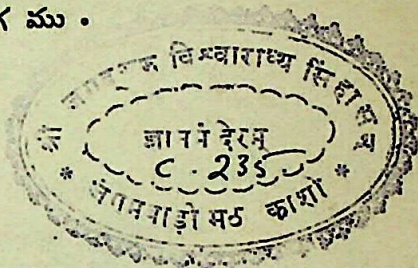 ము .
श्री जगद्गुरु विश्वाराध्य सिंहासन
ज्ञानमंदिरम्
C. 235
* जंगमवाड़ी मठ काशी *